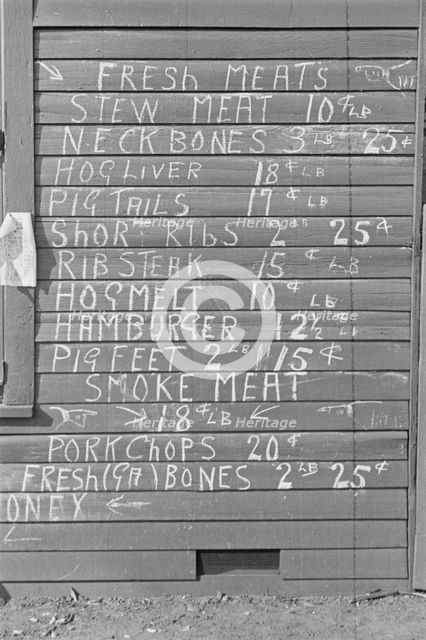 FRESH MEATS
STEW MEAT 10¢ LB
NECKBONES 3 LB 25¢
HOGLIVER 18¢ LB
PIGTAILS 17¢ LB
ShORT RIbS 2 LB 25¢
RIBSTEAK 15¢ LB
HOGMELT 10¢ LB
HAMBURGER 12½ LB
PIGFEET 2 LB 15¢
SMOKE MEAT
18¢ LB
PORKChOPS 20¢
FRESH(GA)BONES 2 LB 25¢
ONEX
Heritage
Heritage
Heritage
Heritage
Heritage
Heritage
©